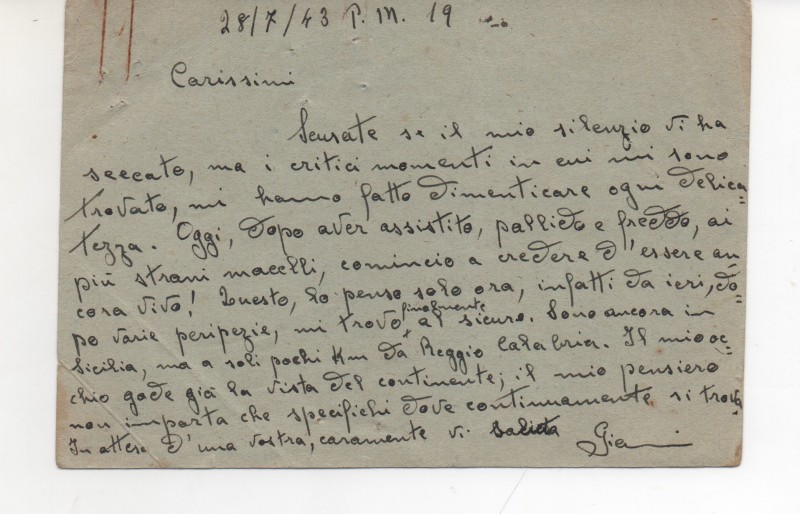 28/7/43 P. M. 19
Carissimi
Scusate se il mio silenzio vi ha
seccato, ma i critici momenti in cui mi sono
trovato, mi hanno fatto dimenticare ogni delica-
tezza. Oggi, dopo aver assistito, pallido e freddo, ai
più strani macelli, comincio a credere d'essere an-
cora vivo! Questo, lo penso solo ora, infatti da ieri, do-
po varie peripezie, mi trovo finalmente al sicuro. Sono ancora in
Sicilia, ma a soli pochi Km da Reggio Calabria. Il mio oc-
chio gode già la vista del continente; il mio pensiero
non importa che specifichi dove continuamente si trova
In attesa d'una vostra, caramente vi saluta Gianni